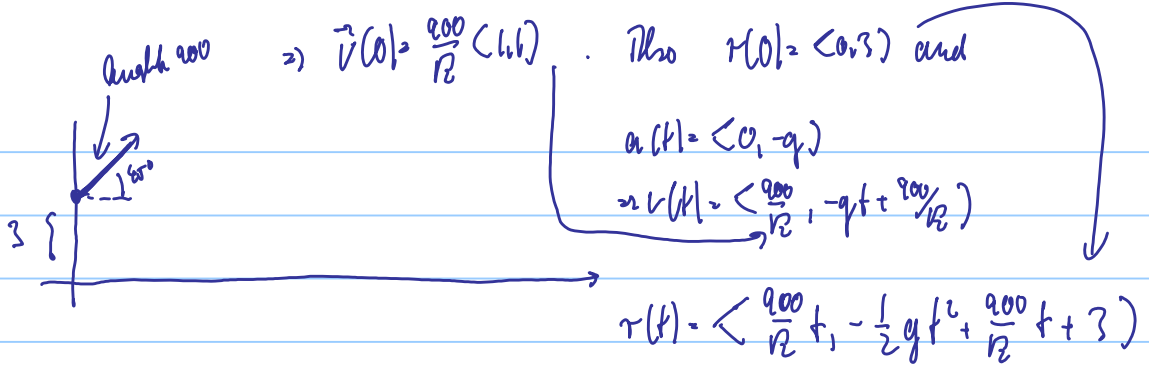 length 900 ⇒ v⃗(0) = 900/√2 <1,1> . Also r(0) = <0,3> and
45°
a(t) = <0, -g>
⇒ v(t) = <900/√2, -gt + 900/√2>
3 {
r(t) = < 900/√2 t, -1/2 gt² + 900/√2 t + 3 >